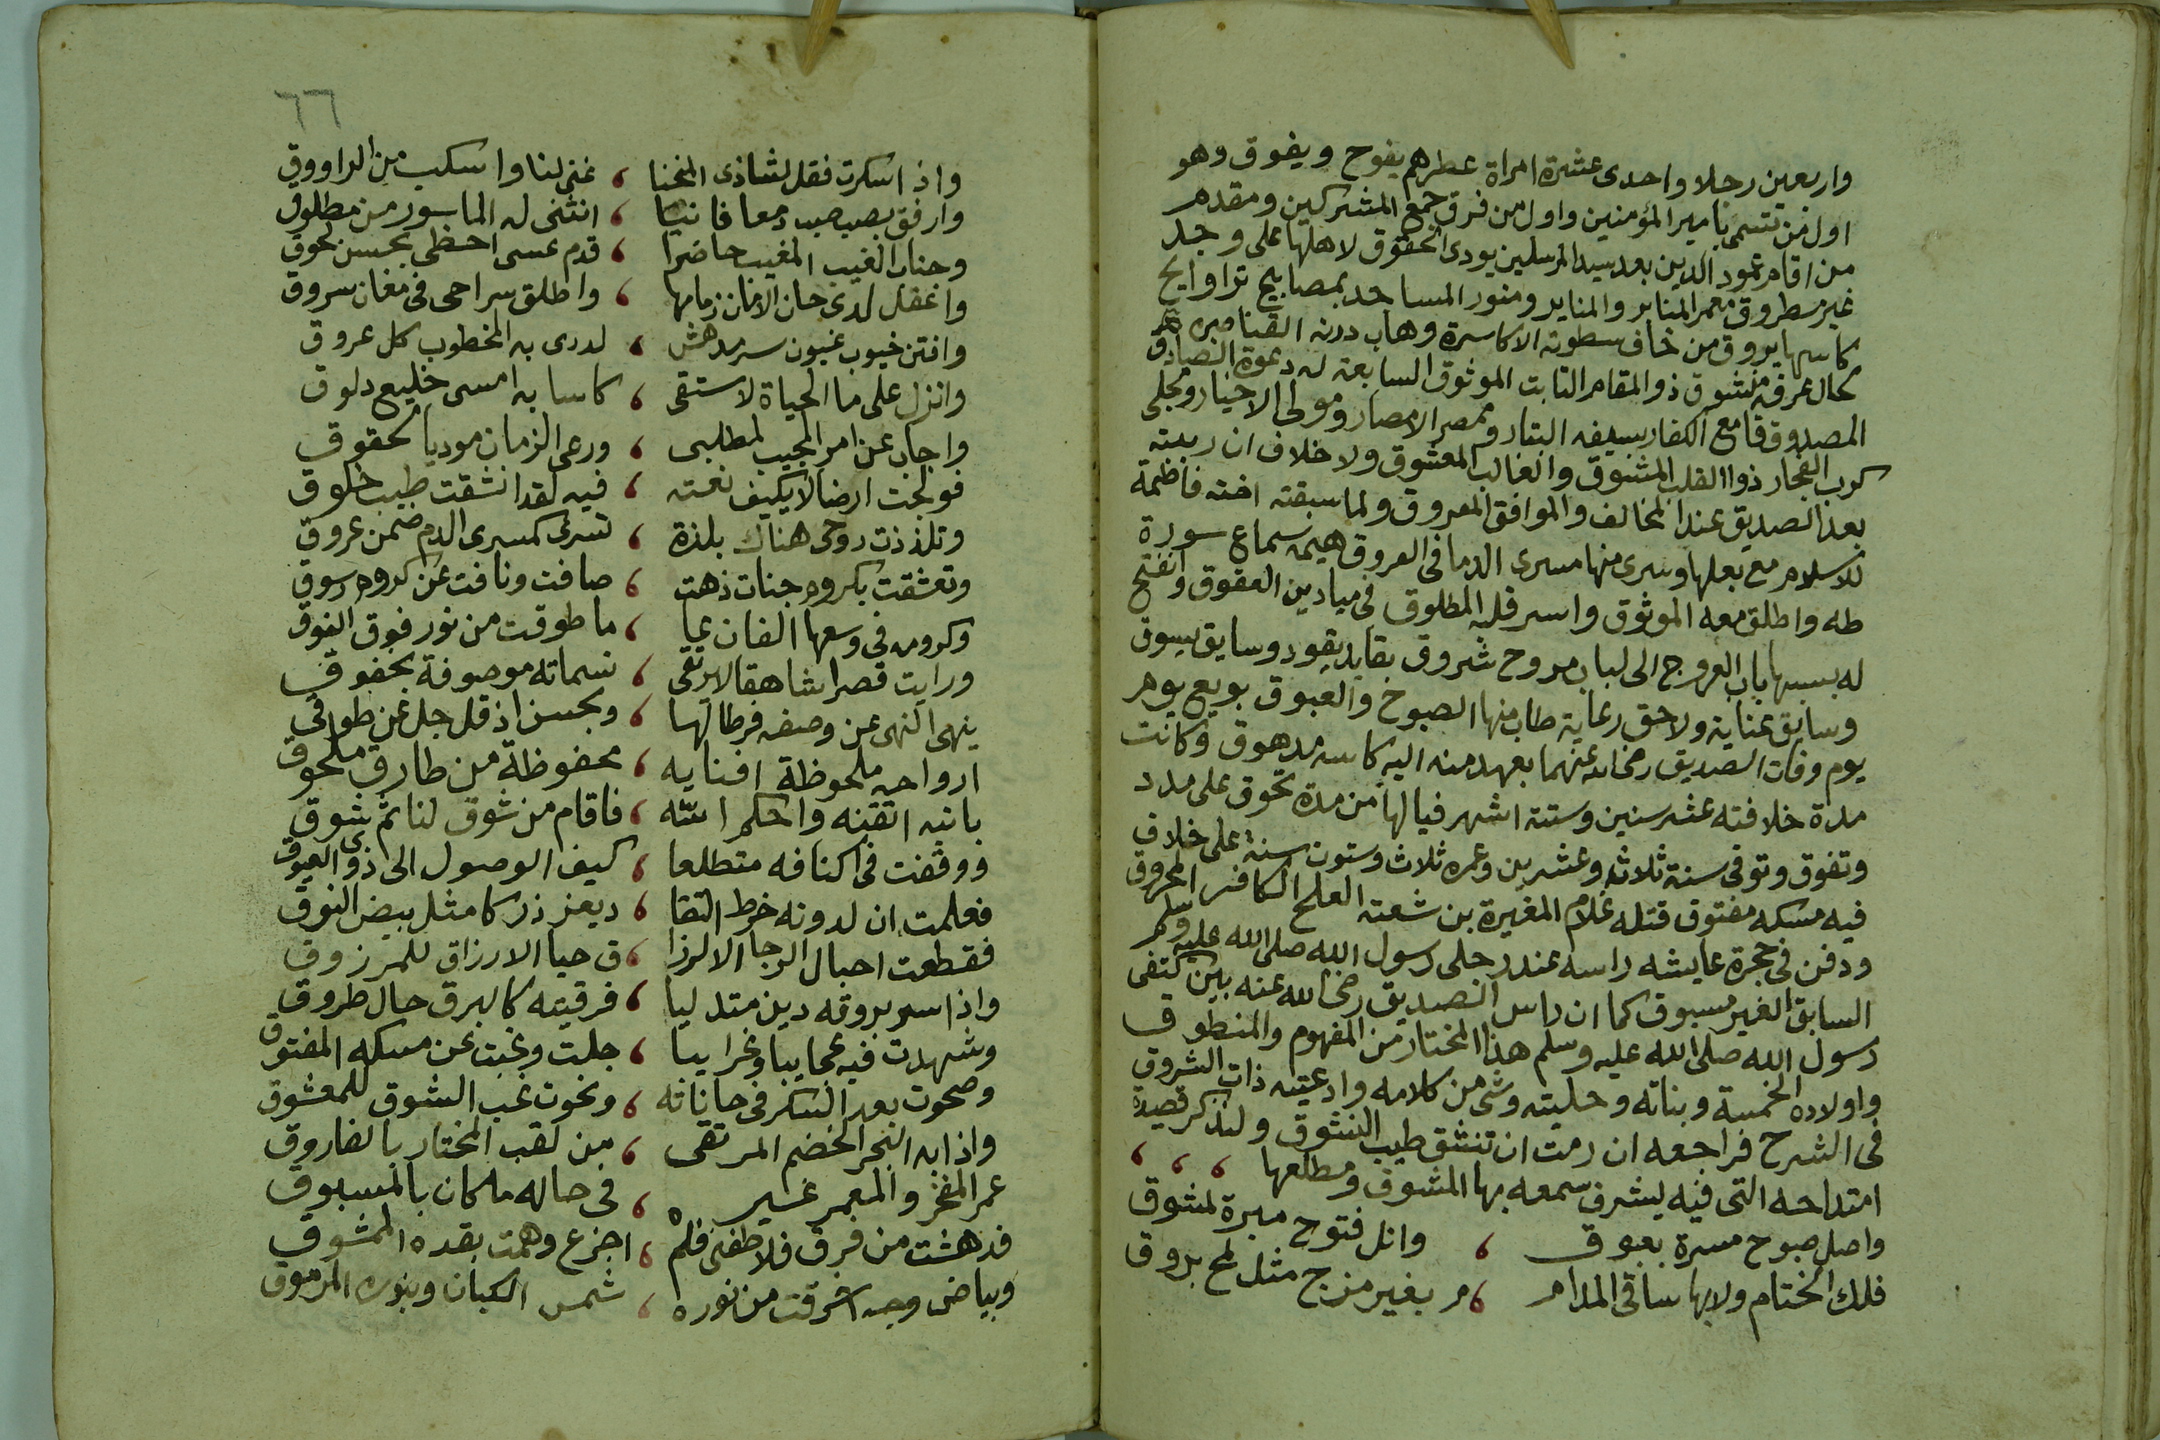 واربعين رجلا واحدى عشرة امراة عطرهم يفوح ويفوق وهو
اول من تسمى بامير المؤمنين واول من فرق جمع المشركين ومقدم
من اقام عمود الدين بعد سيد المرسلين يودى الحقوق لاهلها على وجد
غير مطروق معمر المنابر والمناير ومنور المساجد بمصابيح تراوايح
كاسها يروق من خاف سطوته الاكاسرة وهاب درته القياصره
كحال عرفه منشوق ذو المقام الثابت الموثوق السابعة له دعوة الصادق
المصدوق قامع الكفار بسيفه البتار وممصر الامصار ومولى الاخيار ومجلى
كرب الفجار ذو القلب المشوق والغالب المعشوق ولا خلاف ان ربيته
بعد الصديق عند المخالف والموافق المعروق ولما سبقته اخته فاطمة
للاسلام مع بعلها وسرى منها مسرى الدما فى العروق هيمه سماع سورة
طه واطلق معه الموثوق واسر قلبه المطلوق فى ميادين العقوق وانفتح
له بسببها باب العروج الى لباب مروح شروق بقايد يقود وسايق يسوق
وسابق عناية ولاحق رعاية طاب منها الصبوح والغبوق بويع يوم
يوم وفات الصديق رضى الله عنهما بعهد منه اليه كاسه مدهوق وكانت
مدة خلافته عشر سنين وستة اشهر فيالها من مدة تحوق على مدد
وتفوق وتوفى سنة ثلاثه وعشرين وعمره ثلاث وستون سنة على خلاف
فيه مسكه مفتوق قتله غلام المغيرة بن شعبة العلج الكافر المحروق
ودفن فى حجرة عايشه راسه عند رجلى رسول الله صلى الله عليه وسلم
السابق الغير مسبوق كما ان راس الصديق رضى الله عنه بين كتفى
رسول الله صلى الله عليه وسلم هذا المختار من المفهوم والمنطوق
واولاده الخمسة وبناته وحليته وشى من كلامه وادعيته ذات الشروق
فى الشرح فراجعه ان رمت ان تنشق طيب النشوق ولنذكر قصيدة
امتداحه التى فيه ليشرف سمعه بها المشوق ومطلعها ، ، ،
واصل صبوح مسرة بغبوق ، وانل فتوح مبرة لمشوق
فلك الختام ولابها ساقى المدام ، م بغير مزج مثل لمح بروق
٦٦
واذا سكرت فقل لشاذى المنحنا ، غنى لنا واسكب من الراووق
وارفق بصب صب دمعا فانيا ، انثنى له الماسور من مطلوق
وجناب الغيب المغيب حاضرا ، قدم عسى احظى بحسن لحوق
واغقل لدى حان الامان زمامها ، واطلق سراحى فى مغان سروق
وافتن خيوب غيون سر مدهش ، لدرى به المخطوب كل عروق
وانزل على ما الحياة لاستقى ، كاسا به امسى خليع دلوق
واجاب عن امر المجيب لمطلبى ، ورعى الزمان موديا لحقوق
فولجت ارضا لا يكيف نعته ، فيه لقد انشقت طيب خلوق
وتلذذت روحى هناك بلذة ، تسرى كمسرى الدم ضمن عروق
وتعشقت بكروم جنات ذهت ، صافت ونافت عن كروم رسوق
وكروم فى وسعها الفان عا ، ما طوقت من نور فوق الفوق
ورايت قصرا شاهقا لا يرتقى ، نسماته موصوفة بخفوق
ينهى النهى عن وصفه فرطالها ، وبحسن اذ قل جل عن طواقى
ارواحه ملحوظة افنايه ، محفوظة من طارق ملحوق
بانيه اتقنه واحكم اسه ، فاقام من شوق لنا ثم بشوق
ووقفت فى اكنافه متطلعا ، كيف الوصول الى ذوى العيوق
فعلمت ان لدونه خرط القتا ، ديعز ذركا مثل بيض النوق
فقطعت احبال الرجا الا لرزا ، ق حبا الارزاق للمرزوق
واذا سر بروقه دين متدليا ، فرقيته كالبرق حال طروق
وشهدت فيه عجايبا وغرايبا ، جلت وغبت عن مسكه المفتوق
وصحوت بعد السكر فى حاناته ، ونحوت غب الشوق للمعشوق
واذا به البحر الخضم المرتقى ، من لقب المختار بالفاروق
عمر المفخر والمعمر غير ، فى حاله ما كان بالمسبوق
فدهشت من فرق فلاطفنى فلم ، اجزع وهمت بقده الممشوق
وبياض وجه اشرقت من نوره ، شمس الكيان وبنوره المرموق